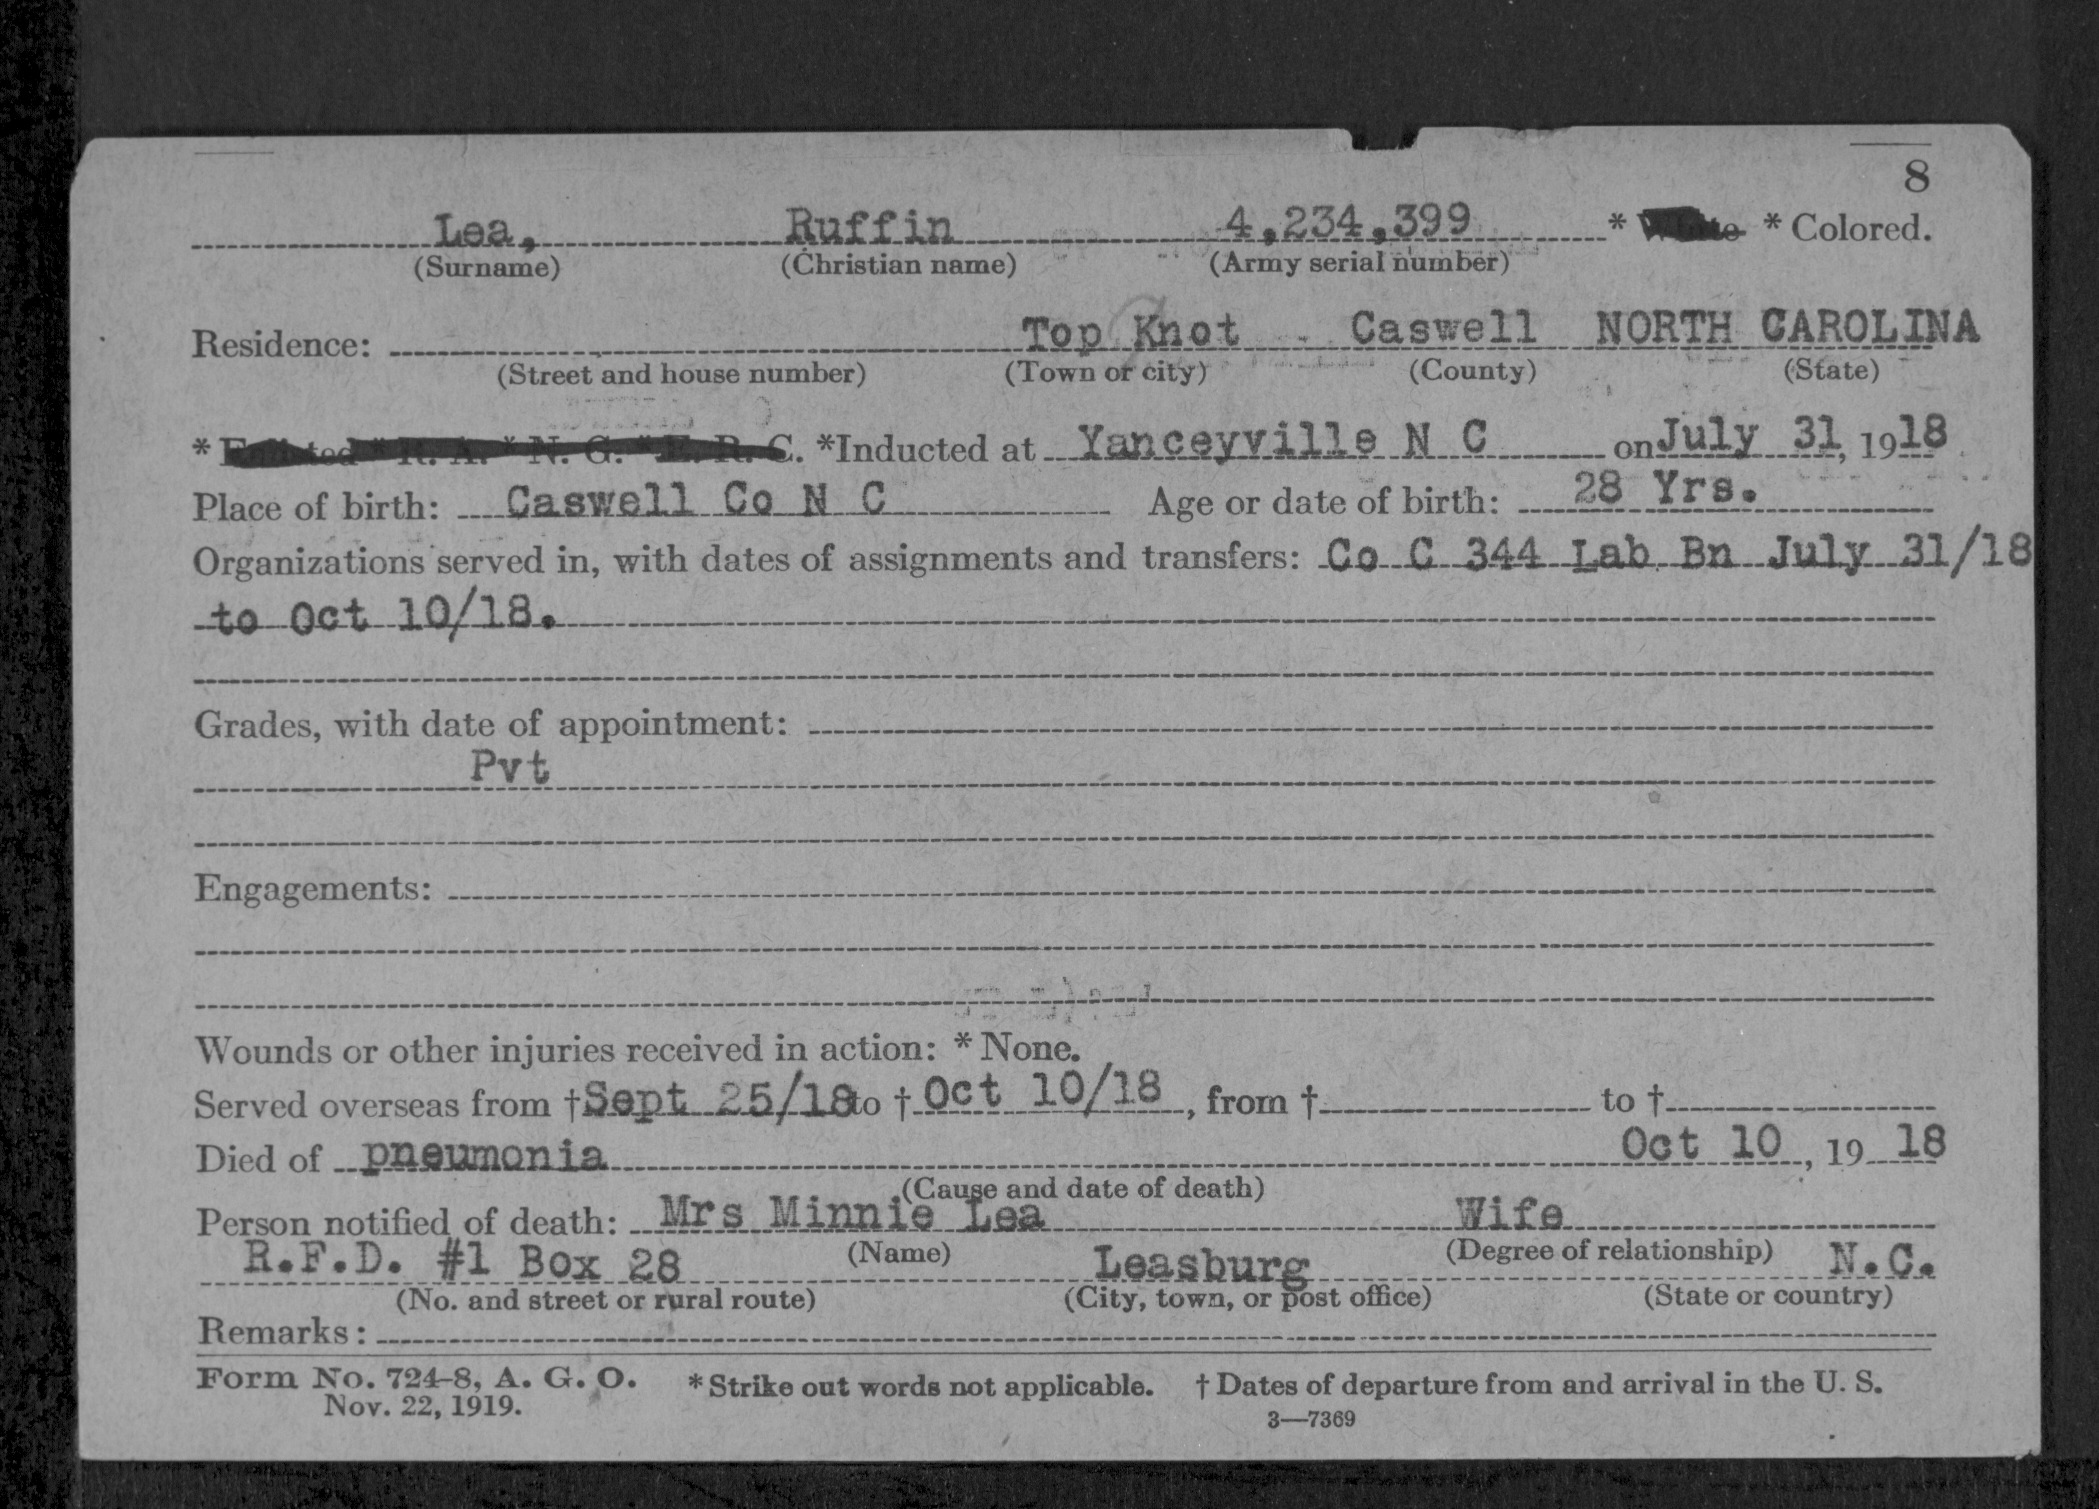 8
Lea, Ruffin 4,234,399 * White * Colored.
(Surname) (Christian name) (Army serial number)
Residence: Top Knot Caswell NORTH CAROLINA
(Street and house number) (Town or city) (County) (State)
* Enlisted * R. A. * N. G. * E. R. C. *Inducted at Yanceyville N C on July 31, 1918
Place of birth: Caswell Co N C Age or date of birth: 28 Yrs.
Organizations served in, with dates of assignments and transfers: Co C 344 Lab Bn July 31/18
to Oct 10/18.
Grades, with date of appointment:
Pvt
Engagements:
Wounds or other injuries received in action: * None.
Served overseas from †Sept 25/18 to † Oct 10/18, from † to †
Died of pneumonia Oct 10, 19 18
(Cause and date of death)
Person notified of death: Mrs Minnie Lea Wife
(Name) (Degree of relationship)
R.F.D. #1 Box 28 Leasburg N.C.
(No. and street or rural route) (City, town, or post office) (State or country)
Remarks:
Form No. 724-8, A. G. O. * Strike out words not applicable. † Dates of departure from and arrival in the U. S.
Nov. 22, 1919. 3—7369